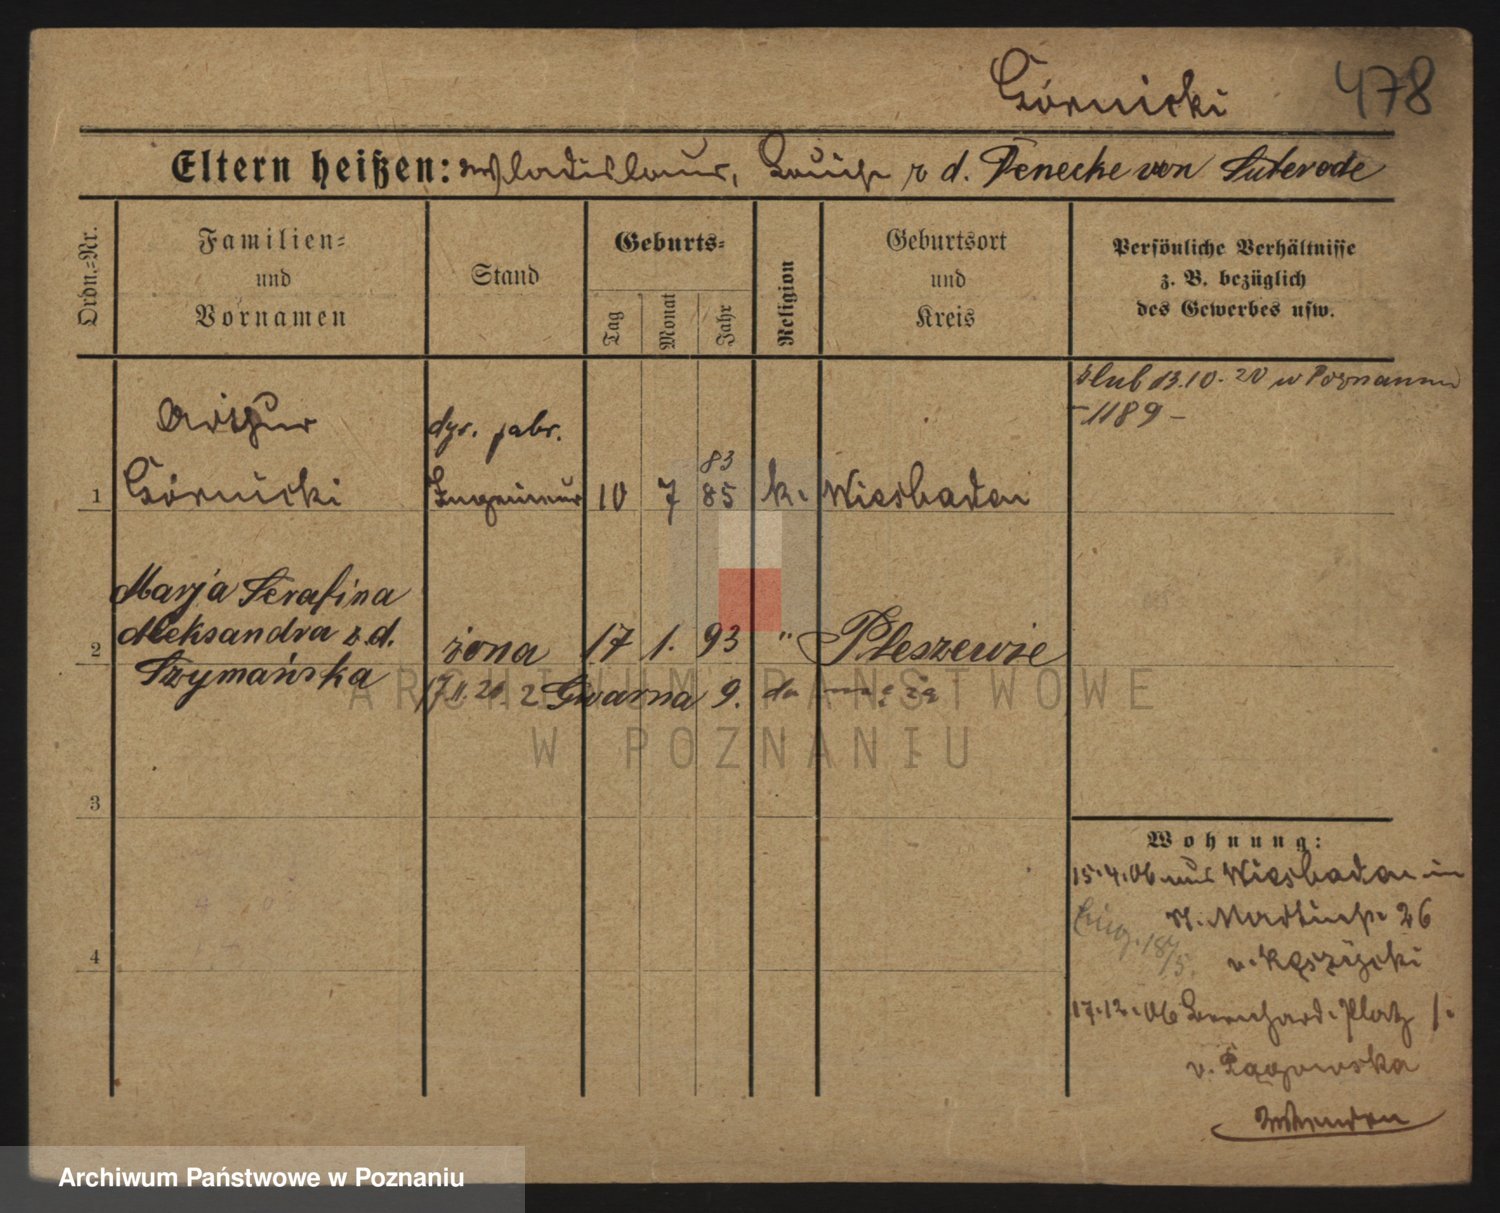 Górnicki 478
Eltern heißen: Wladislaus, Louise z d. Denecke von Luterode
Ordn.-Nr.
Familien-
und
Vornamen
Stand
Geburts-
Tag
Monat
Jahr
Religion
Geburtsort
und
Kreis
Persönliche Verhältnisse
z. B. bezüglich
des Gewerbes usw.
ślub 13.10.20 w Poznaniu
- 1189 -
Arthur dyr. fabr.
83
1 Górnicki Ingenieur 10 7 85 k. Wiesbaden
Marja Serafina
Aleksandra z.d.
2 Szymańska żona 17 1. 93 " Pleszewie
17.11.20. 2 Gwarna 9. do męża
3
4
Wohnung:
15.4.06 aus Wiesbaden in
St. Martinstr. 26
v.
17.12.06 Bernhard. Platz 1.
v. Łagowska
ARCHIWUM PAŃSTWOWE
W POZNANIU
Archiwum Państwowe w Poznaniu